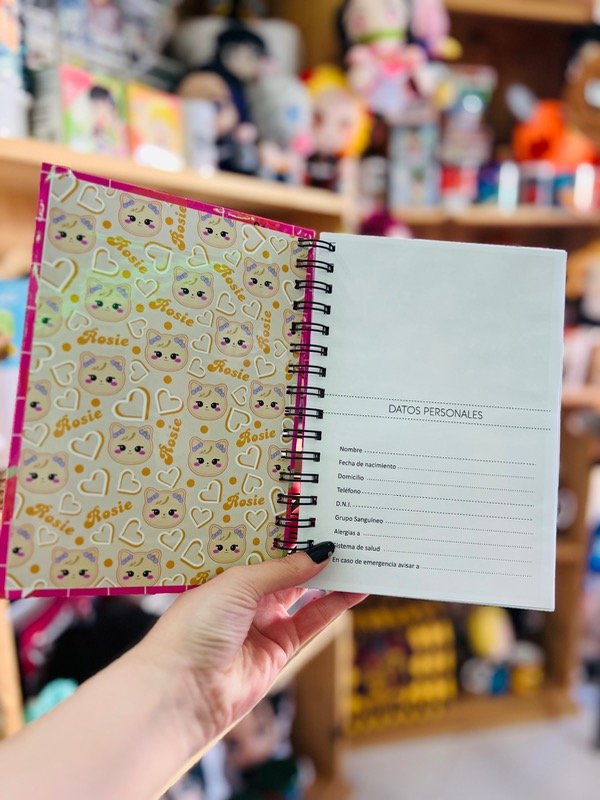 Rosie
Rosie
Rosie
Rosie
Rosie
Rosie
Rosie
Rosie
Rosie
Rosie
Rosie
Rosie
DATOS PERSONALES
Nombre
Fecha de nacimiento
Domicilio
Teléfono
D.N.I.
Grupo Sanguíneo
Alergias a
Sistema de salud
En caso de emergencia avisar a